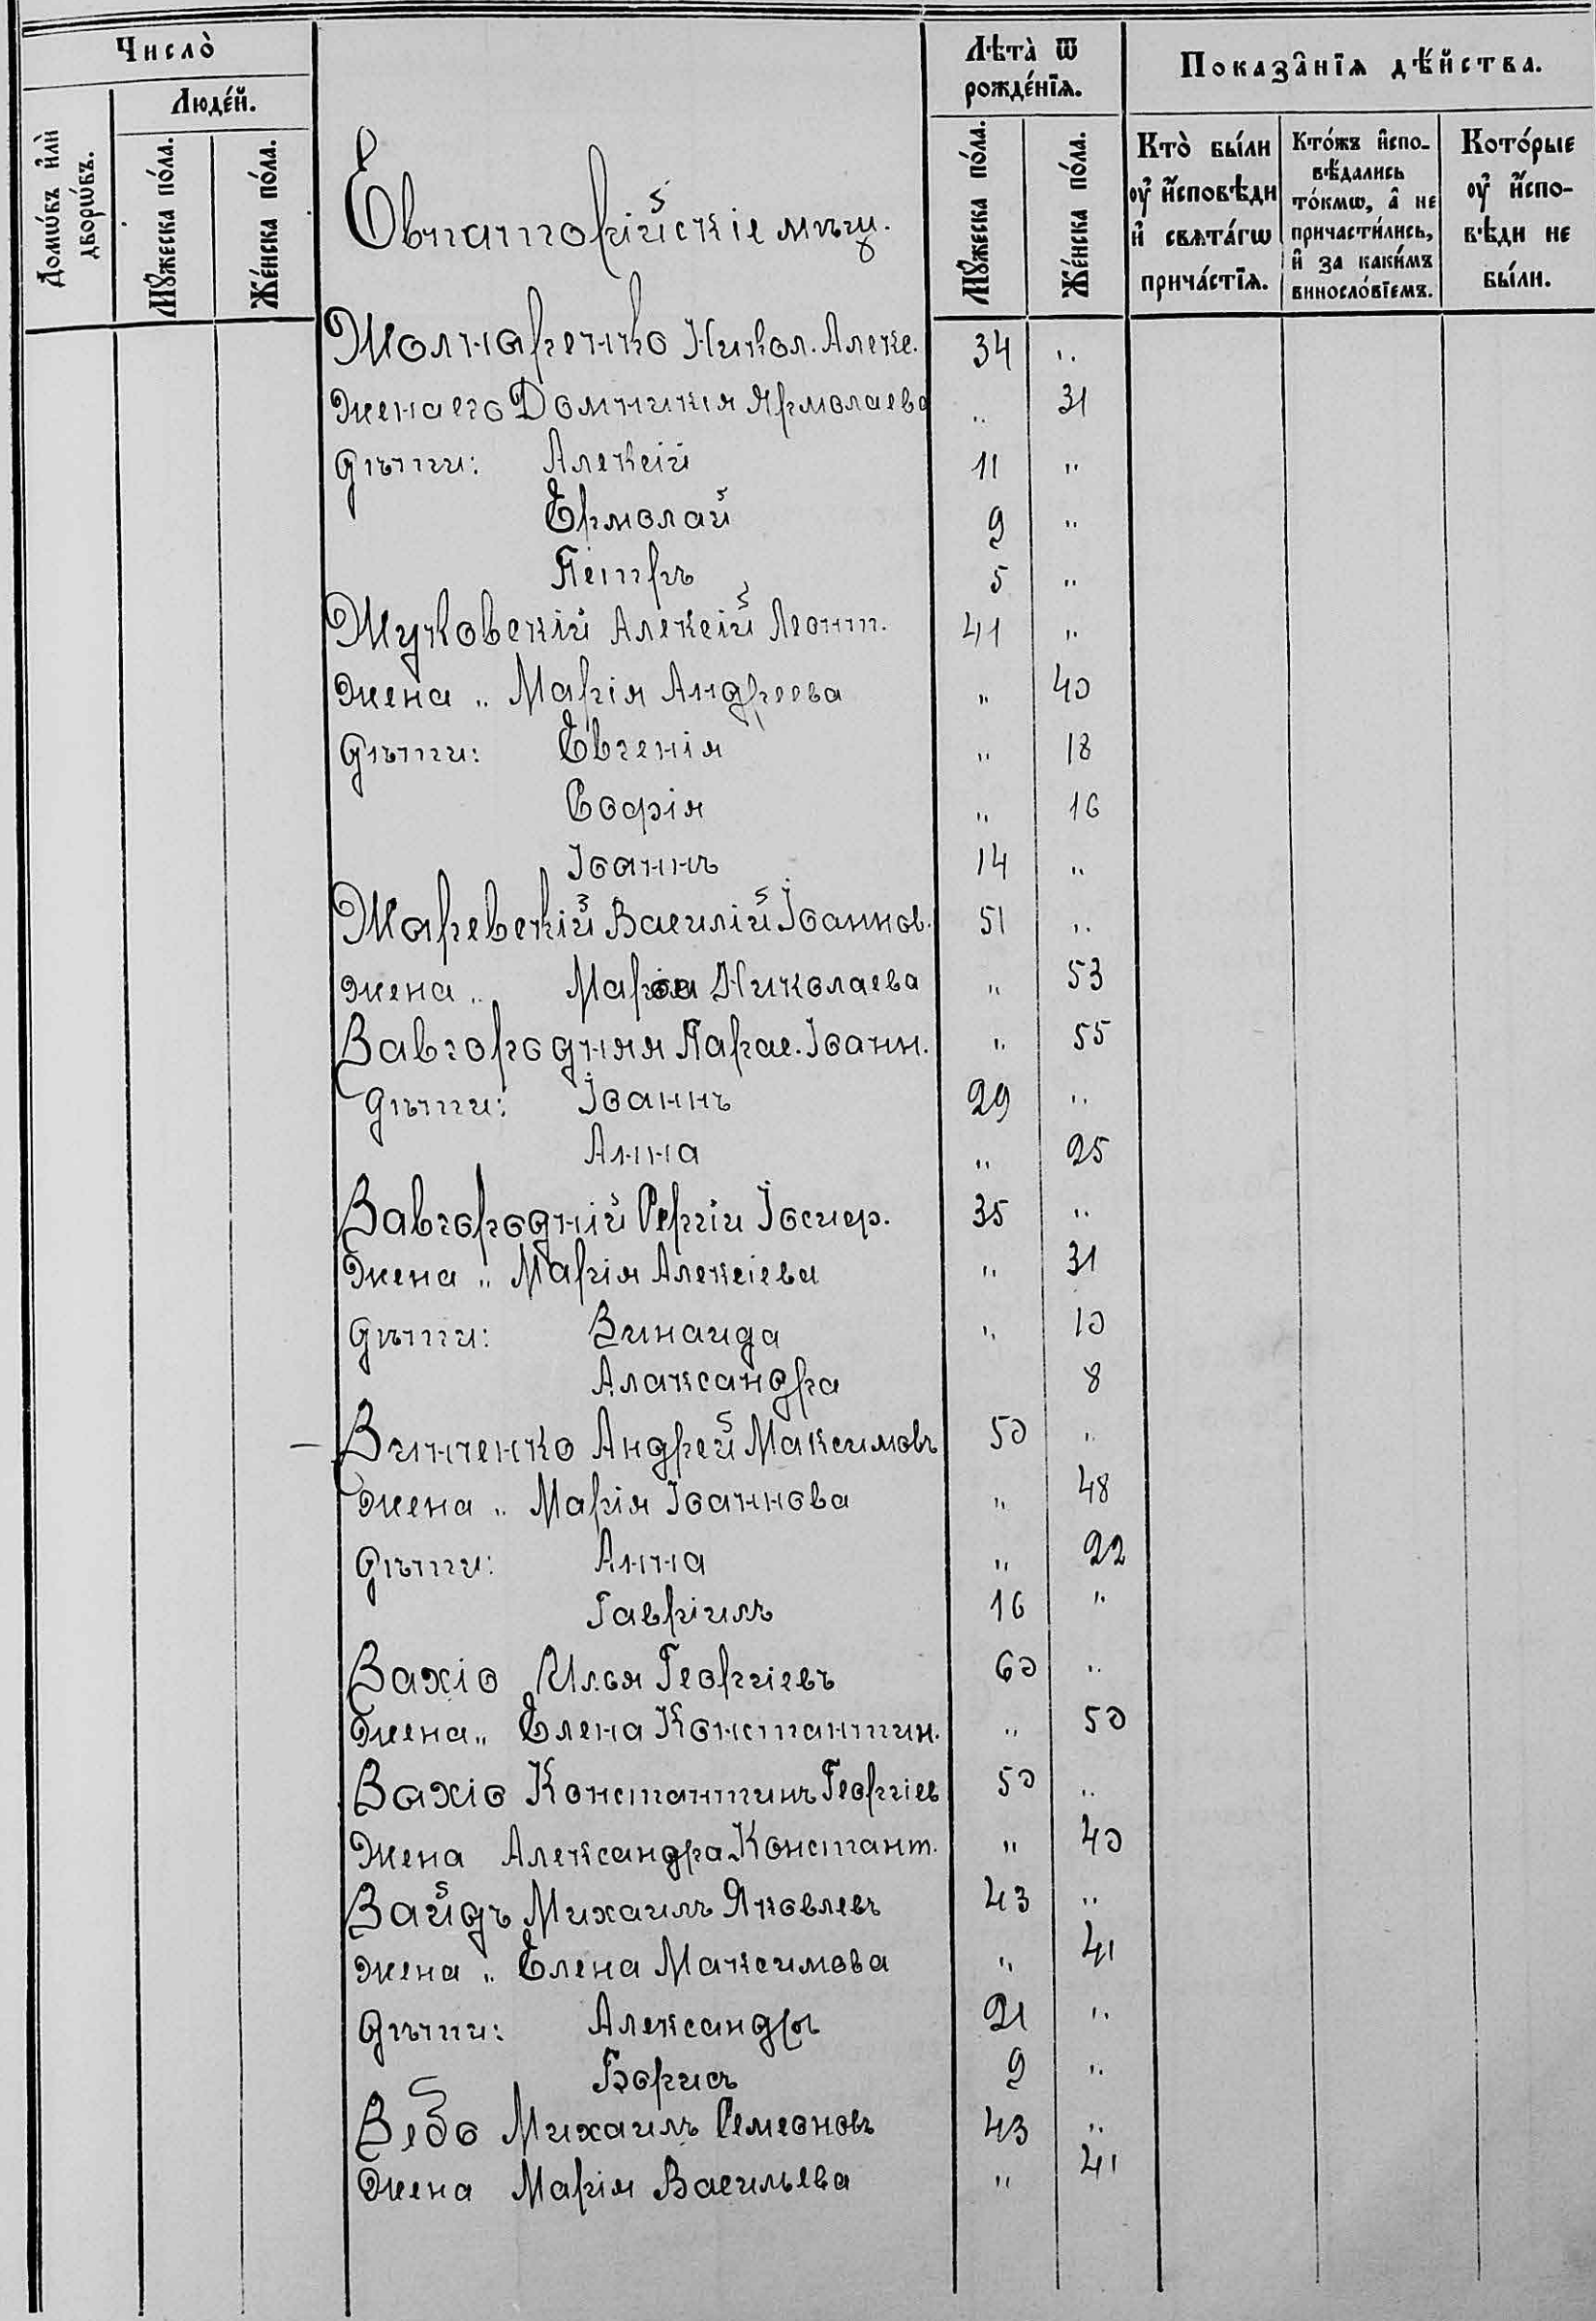 Число̀
Лѣта̀ ѿ рожде́нїѧ.
Показа̑нїѧ дѣ́йства.
Домѡ́въ и҆лѝ дворѡ́въ.
Люде́й.
Мꙋ́жеска по́ла.
Же́нска по́ла.
Мꙋ́жеска по́ла.
Же́нска по́ла.
Кто̀ бы́ли оу҆ и҆́сповѣди и҆ свѧта́гѡ прича́стїѧ.
Кто́жъ и҆спо-вѣ́дались то́кмѡ, а҆ не причасти́лись, и҆ за каки́мъ виносло́вїемъ.
Кото́рые оу҆ и҆́спо-вѣди не бы́ли.
Евпаторійскіе мѣщ.
Жолнаренко Никол. Алексе. 34 "
Жена его Домникія Ярмолаева " 31
Дѣти: Алексій 11 "
Ермолай 9 "
Петръ 5 "
Жуковскій Алексій Леонт. 41 "
Жена " Марія Андреева " 40
Дѣти: Евгенія " 18
Софія " 16
Іоаннъ 14 "
Жаревскій Василій Іоаннов. 51 "
жена " Марія Николаева " 53
Завгородняя Парас. Іоанн. " 55
Дѣти: Іоаннъ 29 "
Анна " 25
Завгородній Сергій Іосиф. 35 "
Жена " Марія Алексіева " 31
Дѣти: Зинаида " 10
Алаксандра 8
Зинченко Андрей Максимовъ 50 "
Жена " Марія Іоаннова " 48
Дѣти: Анна " 22
Гавріилъ 16 "
Захіо Илья Георгіевъ 60 "
Жена " Елена Константин. " 50
Захіо Константинъ Георгіев 50 "
Жена Александра Констант. " 40
Зайдъ Михаилъ Яковлевъ 43 "
жена " Елена Максимова " 41
Дѣти: Александръ 21 "
Борисъ 9 "
Зебо Михаилъ Семеоновъ 43 "
Жена Марія Васильева " 41